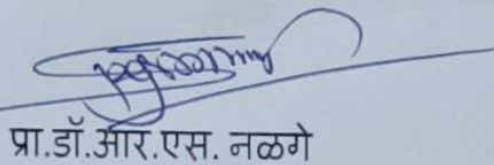 प्रा.डॉ.आर.एस. नळगे